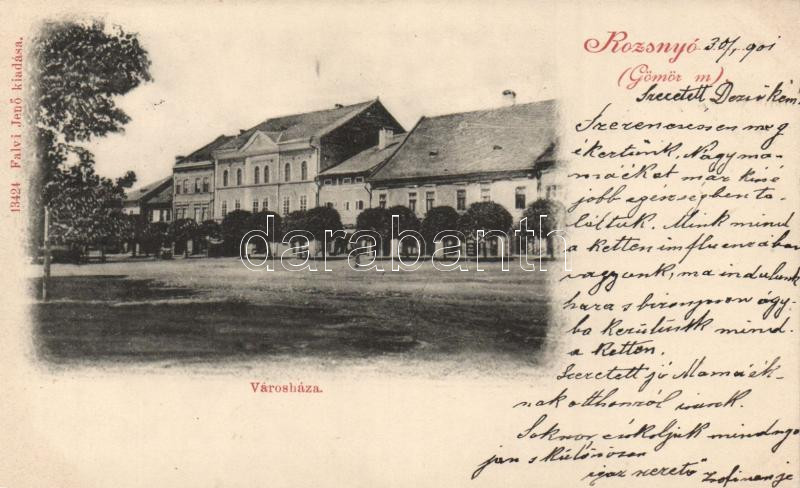 13424 Falvi Jenő kiadása.
Rozsnyó 30/ 901
(Gömör m).
Szeretett Dezsőkém!
Szerencsésen meg
ékertünk, Nagyma-
máékat már kissé
jobb egészségben ta-
láltuk. Mink mind
a ketten influenzában
vagyunk, ma indulunk
haza s bizonyosan ágy-
ba kerülünk mind-
a ketten.
Szeretett jó Mamáék-
nak otthonról irunk.
Sokszor csókoljuk mindnyá-
jan s különösen
igaz szerető
darabanth
Városháza.